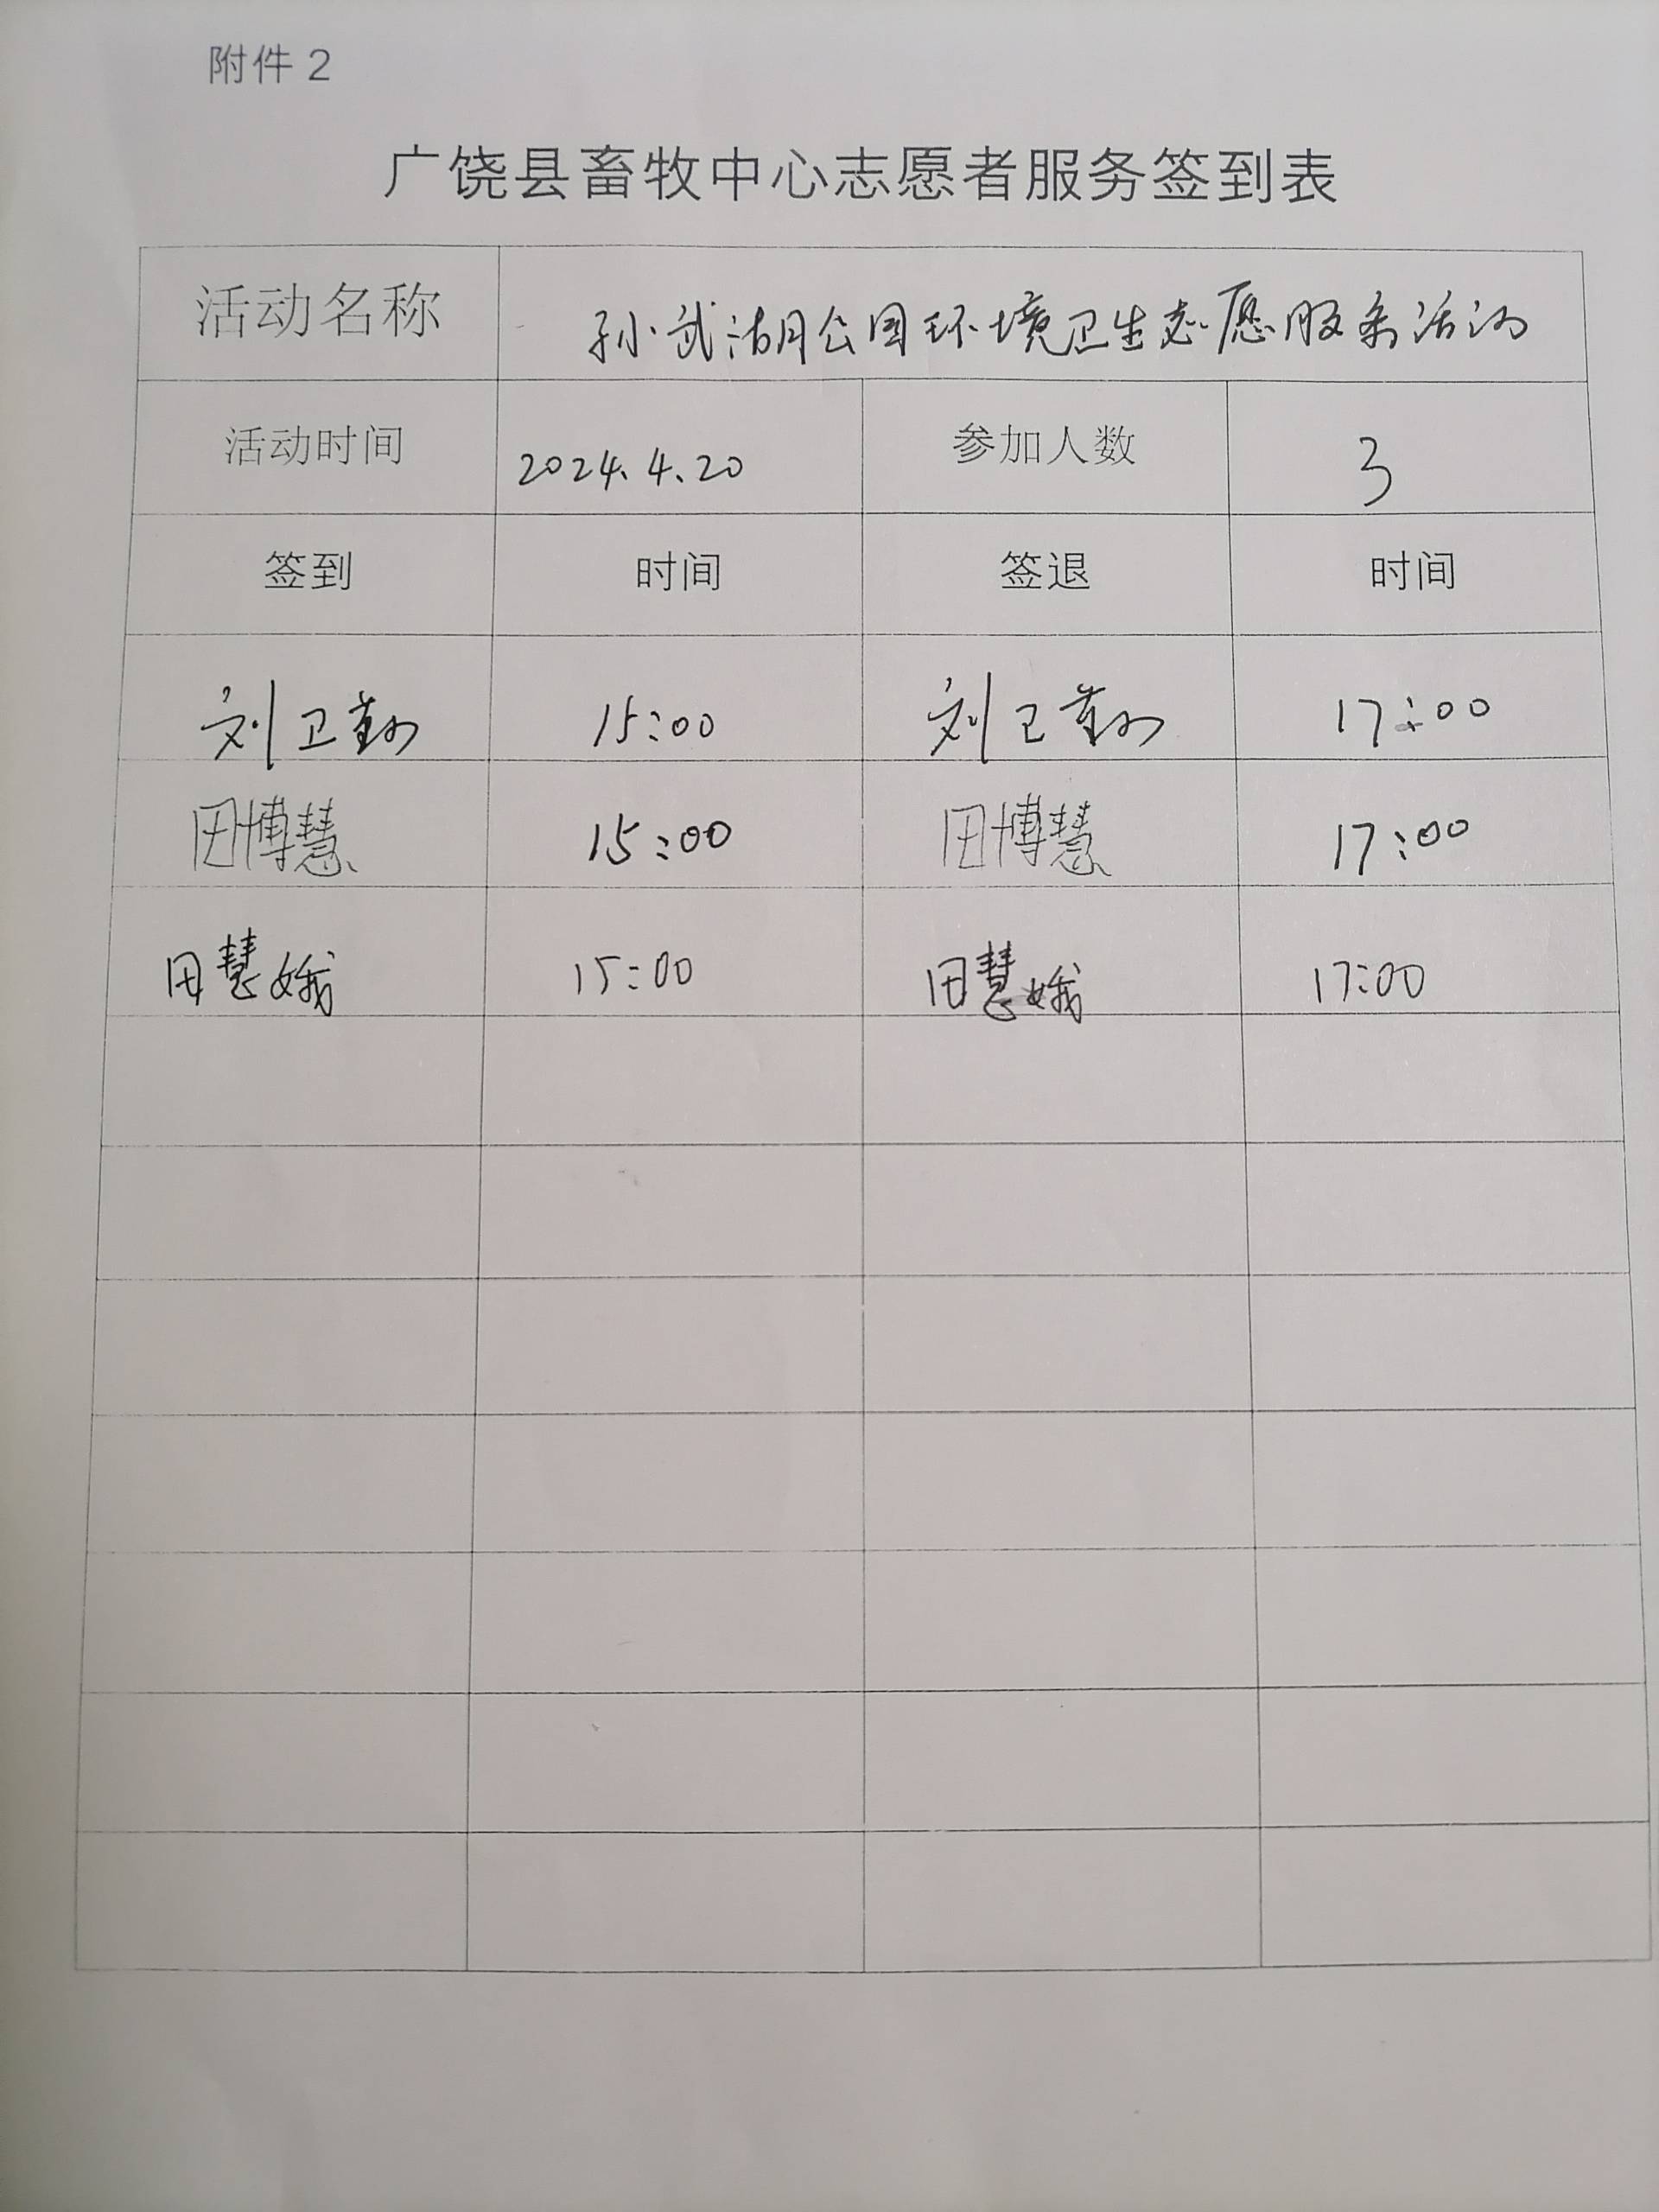 附件2
广饶县畜牧中心志愿者服务签到表
活动名称 孙武湖公园环境卫生志愿服务活动
活动时间 2024.4.20 参加人数 3
签到 时间 签退 时间
刘卫勤 15:00 刘卫勤 17:00
田博慧 15:00 田博慧 17:00
田慧娥 15:00 田慧娥 17:00